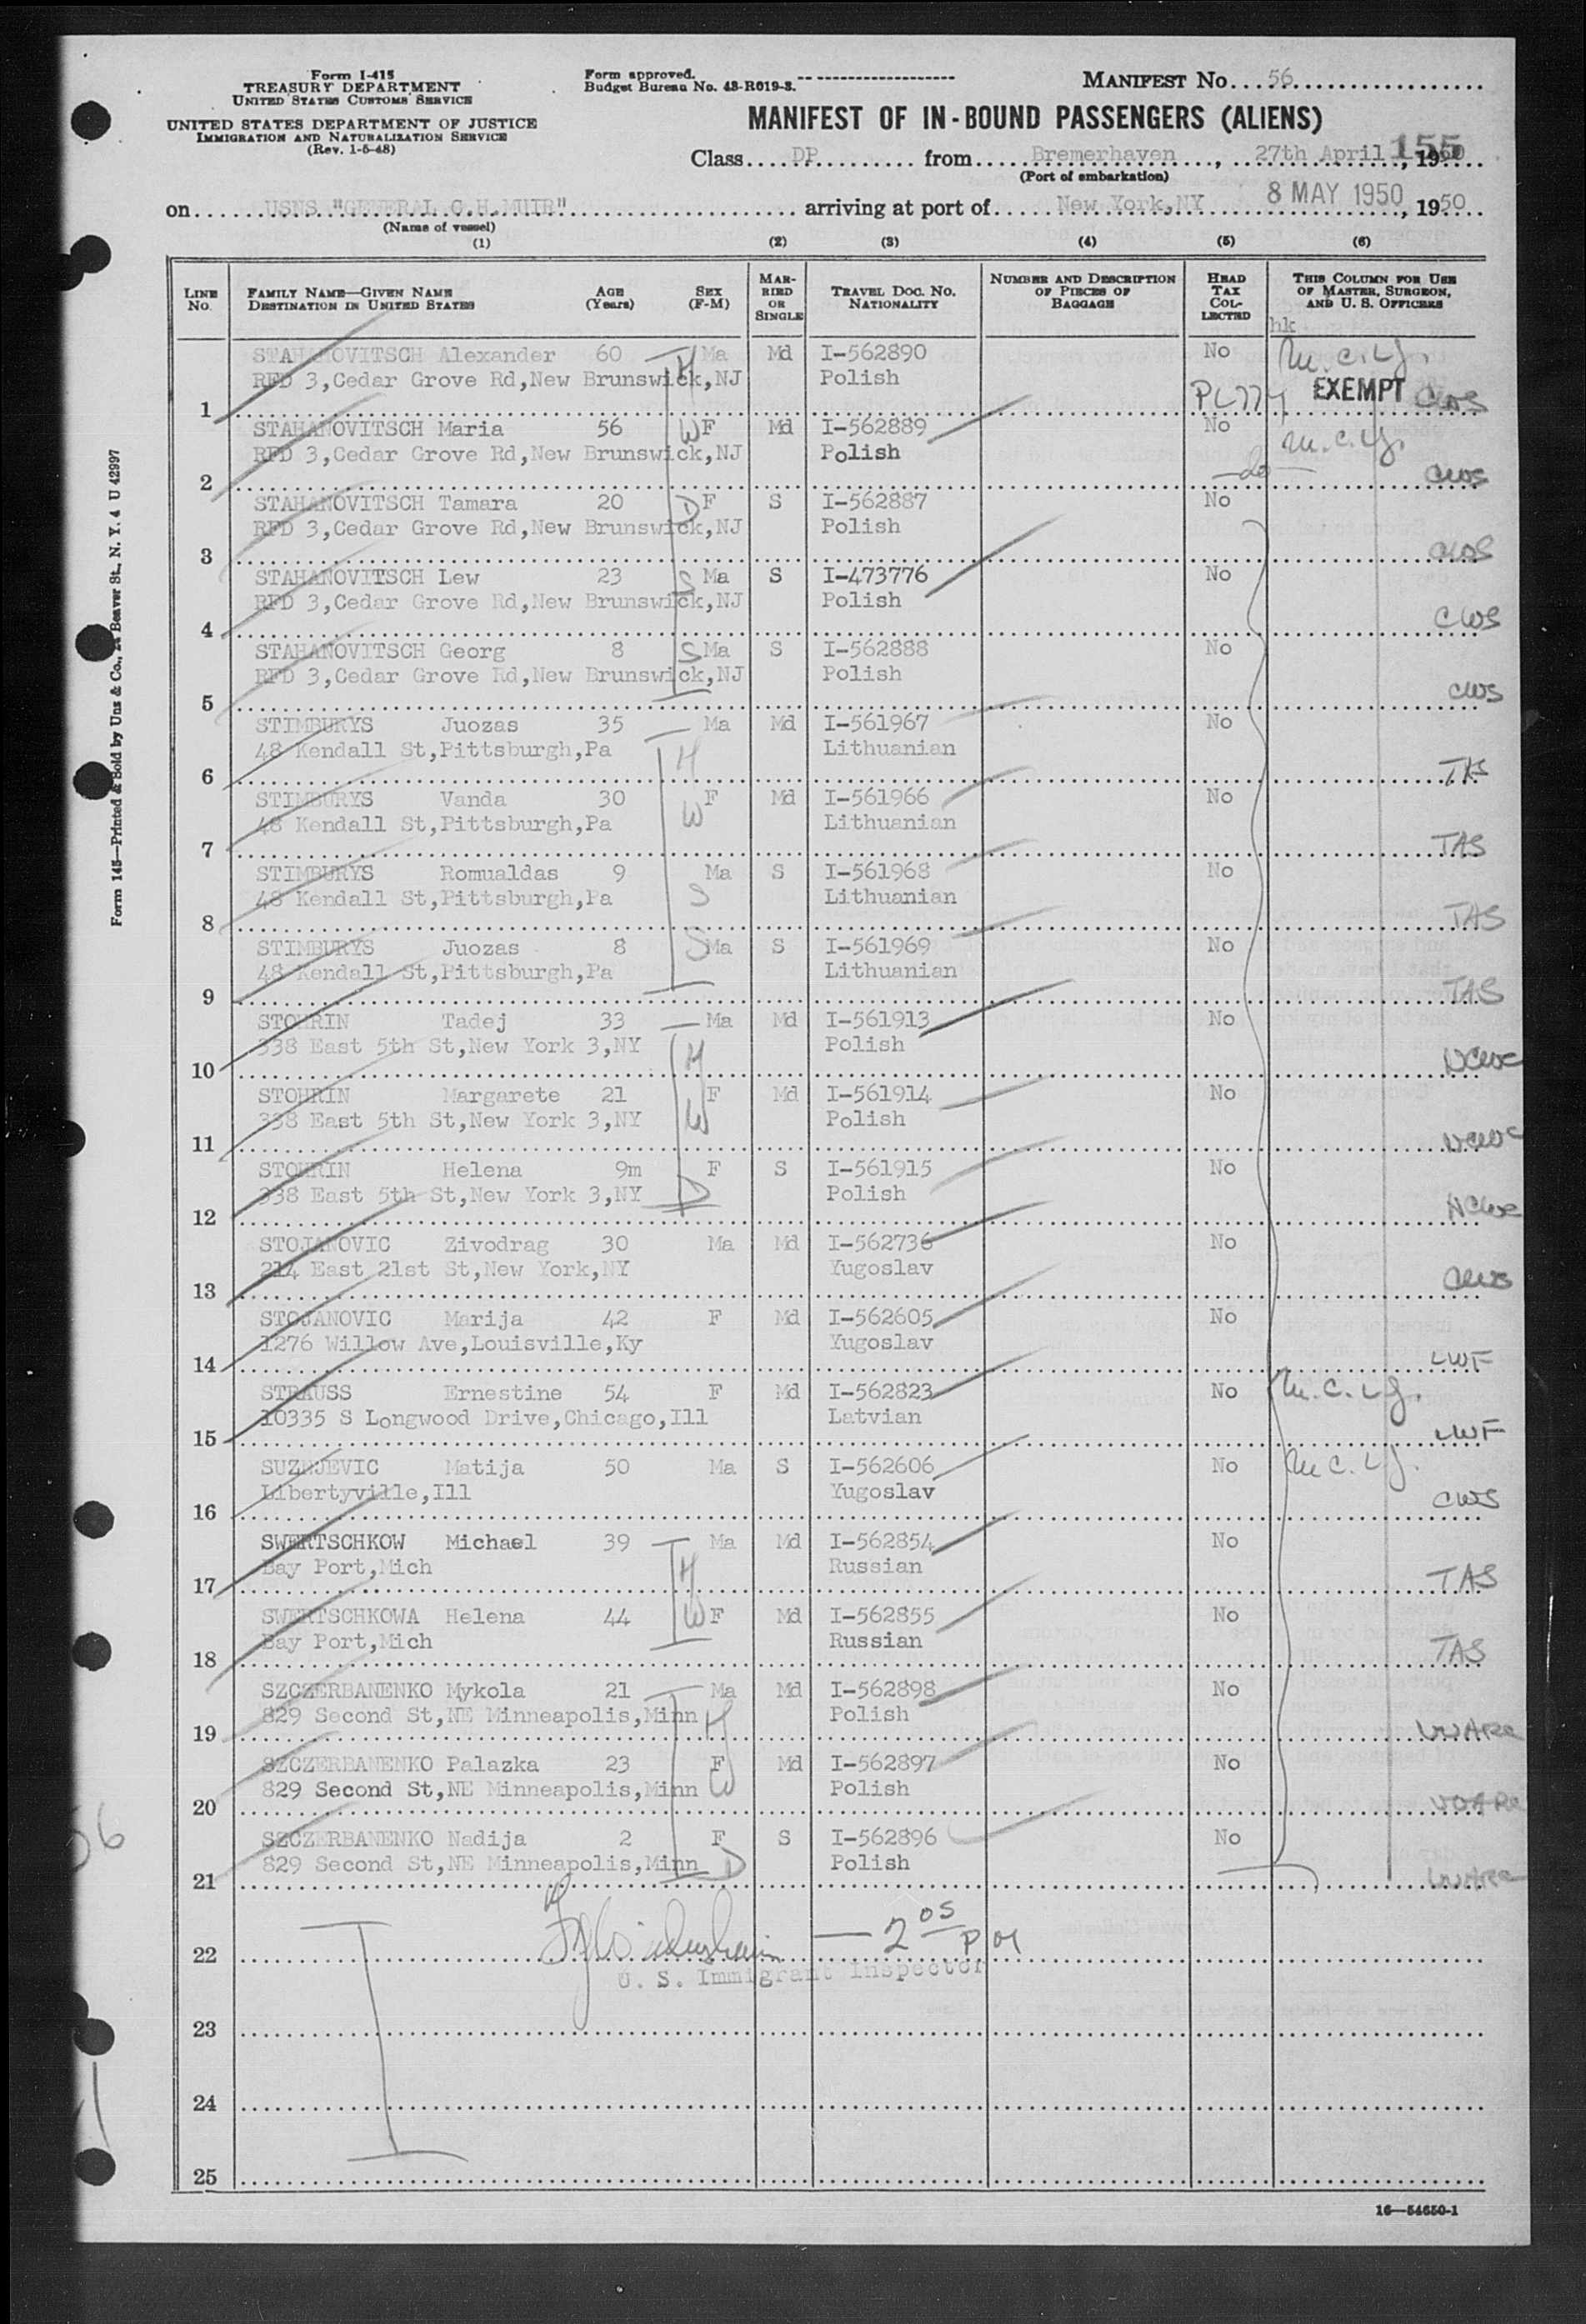 Form I-415
TREASURY DEPARTMENT
UNITED STATES CUSTOMS SERVICE
UNITED STATES DEPARTMENT OF JUSTICE
IMMIGRATION AND NATURALIZATION SERVICE
(Rev. 1-5-48)
Form approved.
Budget Bureau No. 43-R019-3.
MANIFEST NO. 56
MANIFEST OF IN-BOUND PASSENGERS (ALIENS)
155
Class DP from Bremerhaven, 27th April, 1950
(Port of embarkation)
on USNS "GENERAL C.H.MUIR" arriving at port of New York,NY 8 MAY 1950, 1950
(Name of vessel)
(1) (2) (3) (4) (5) (6)
LINE NO. FAMILY NAME—GIVEN NAME DESTINATION IN UNITED STATES AGE (Years) SEX (F-M) MARRIED OR SINGLE TRAVEL DOC. NO. NATIONALITY NUMBER AND DESCRIPTION OF PIECES OF BAGGAGE HEAD TAX COLLECTED THIS COLUMN FOR USE OF MASTER, SURGEON, AND U. S. OFFICERS
hk
STAHANOVITSCH Alexander 60 H Ma Md I-562890 No M.C.L.G.
RFD 3,Cedar Grove Rd,New Brunswick,NJ Polish
1 PL774 EXEMPT CWS
STAHANOVITSCH Maria 56 W F Md I-562889 No M.C.L.G.
RFD 3,Cedar Grove Rd,New Brunswick,NJ Polish
2 do CWS
STAHANOVITSCH Tamara 20 D F S I-562887 No
RFD 3,Cedar Grove Rd,New Brunswick,NJ Polish
3 CWS
STAHANOVITSCH Lew 23 S Ma S I-473776 No
RFD 3,Cedar Grove Rd,New Brunswick,NJ Polish
4 CWS
STAHANOVITSCH Georg 8 S Ma S I-562888 No
RFD 3,Cedar Grove Rd,New Brunswick,NJ Polish
5 CWS
STIMBURYS Juozas 35 Ma Md I-561967 No
48 Kendall St,Pittsburgh,Pa H Lithuanian
6 TAS
STIMBURYS Vanda 30 W F Md I-561966 No
48 Kendall St,Pittsburgh,Pa Lithuanian
7 TAS
STIMBURYS Romualdas 9 Ma S I-561968 No
48 Kendall St,Pittsburgh,Pa S Lithuanian
8 TAS
STIMBURYS Juozas 8 S Ma S I-561969 No
48 Kendall St,Pittsburgh,Pa Lithuanian
9 TAS
STOHRIN Tadej 33 Ma Md I-561913 No
338 East 5th St,New York 3,NY H Polish
10 NCWC
STOHRIN Margarete 21 F Md I-561914 No
338 East 5th St,New York 3,NY W Polish
11 NCWC
STOHRIN Helena 9m F S I-561915 No
338 East 5th St,New York 3,NY D Polish
12 NCWC
STOJANOVIC Zivodrag 30 Ma Md I-562736 No
214 East 21st St,New York,NY Yugoslav
13 CWS
STOJANOVIC Marija 42 F Md I-562605 No
1276 Willow Ave,Louisville,Ky Yugoslav
14 LWF
STRAUSS Ernestine 54 F Md I-562823 No M.C.L.G.
10335 S Longwood Drive,Chicago,Ill Latvian
15 LWF
SUZNJEVIC Matija 50 Ma S I-562606 No M.C.L.G.
Libertyville,Ill Yugoslav
16 CWS
SWERTSCHKOW Michael 39 Ma Md I-562854 No
Bay Port,Mich H Russian
17 TAS
SWERTSCHKOWA Helena 44 W F Md I-562855 No
Bay Port,Mich Russian
18 TAS
SZCZERBANENKO Mykola 21 Ma Md I-562898 No
829 Second St,NE Minneapolis,Minn H Polish
19
SZCZERBANENKO Palazka 23 F Md I-562897 No
829 Second St,NE Minneapolis,Minn W Polish
20
SZCZERBANENKO Nadija 2 F S I-562896 No
829 Second St,NE Minneapolis,Minn D Polish
21
22 2 05 PM
U. S. Immigrant Inspector
23
24
25
16—54650-1
Form 145—Printed & Sold by Unz & Co., 24 Beaver St., N. Y. 4 U 42997
56